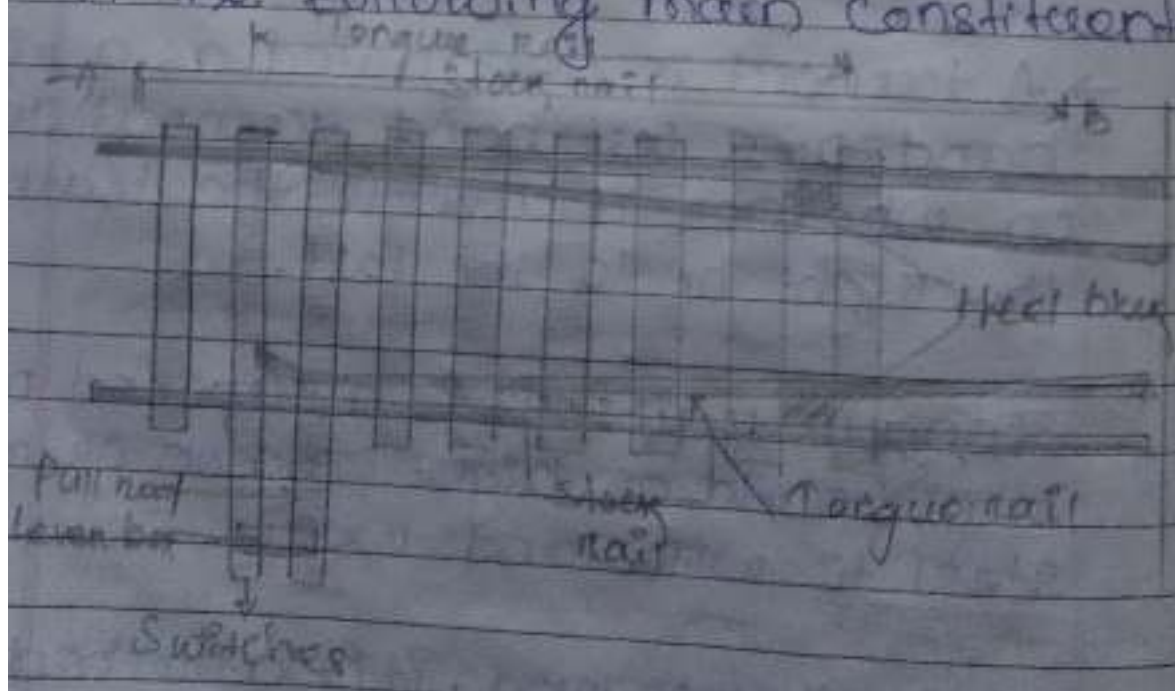 Following main Constituent
Tongue rail
A Stock rail B
Heel bloc
Pull roof
Lever box
Stock
rail
Tongue rail
Switches